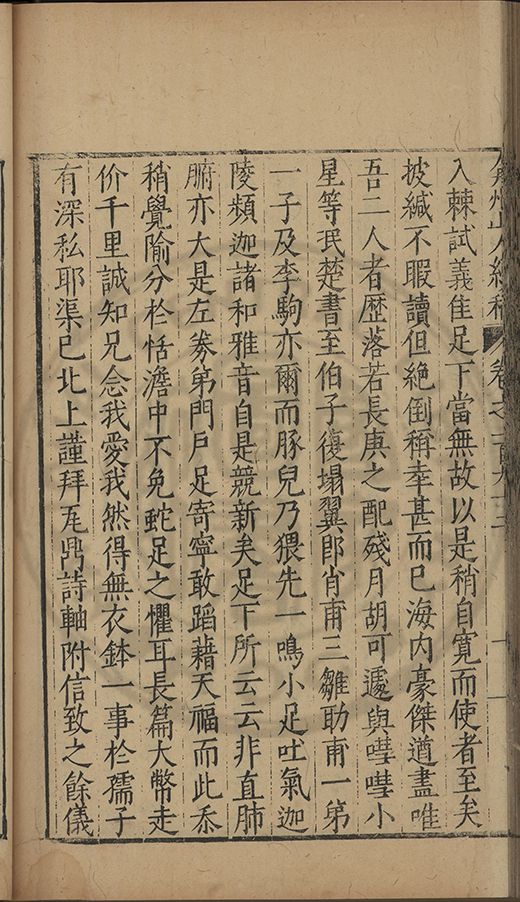 弇州山人續稿 卷之一百九十二 十一
入棘試義隹足下當無故以是稍自寬而使者至矣
披緘不暇讀但絶倒稱幸甚而巳海内豪傑遒盡唯
吾二人者歴落若長庚之配殘月胡可遽與嘒嘒小
星等民楚書至伯子復塌翼郎肖甫三雛助甫一第
一子及李駒亦爾而豚兒乃猥先一鳴小足吐氣迦
陵頻迦諸和雅音自是競新矣足下所云云非直肺
腑亦大是左券第門戸足寄寧敢蹈藉天福而此忝
稍覺隃分於恬澹中不免蛇足之懼耳長篇大幣走
价千里誠知兄念我愛我然得無衣鉢一事於孺子
有深私耶渠巳北上謹拜瓦鼎詩軸附信致之餘儀